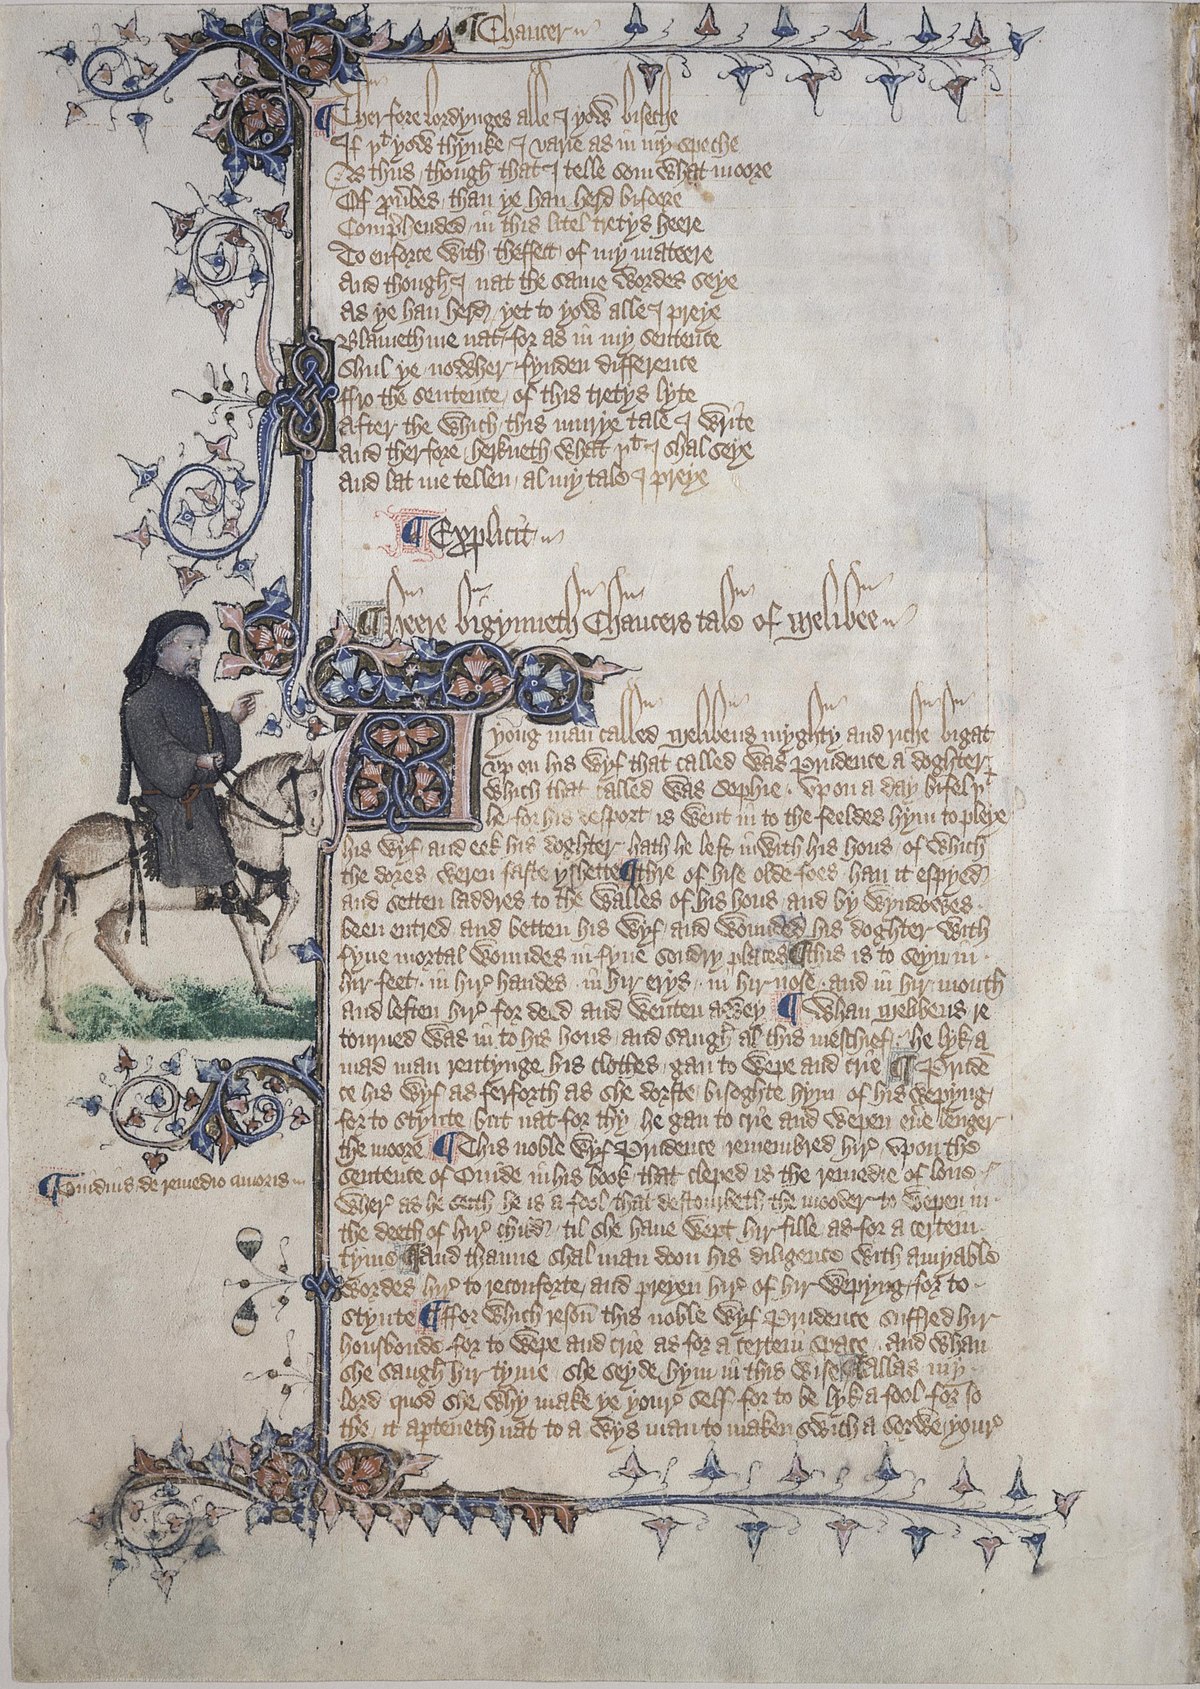 ¶ Chaucer
¶ Therfore lordynges alle I yow biseche
If þᵗ yow thynke I varie as in my speche
As thus though that I telle som what moore
Of prouerbes than ye han herd bifoore
Comprehended in this litel tretys heere
To enforce with theffect of my mateere
And though I nat the same wordes seye
As ye han herd yet to yow alle I preye
Blameth me nat for as in my sentence
Shul ye nowher fynden difference
ffro the sentence of this tretys lyte
After the which this murye tale I write
And therfore herkneth what þᵗ I shal seye
And lat me tellen al my tale I preye
¶ Explicit
¶ Heere bigynneth Chaucers tale of Melibee
A yong man called Melibeus myghty and riche bigat
vp on his wyf that called was Prudence a doghter
which that called was Sophie . vpon a day bifel þᵗ
he for his desport is went in to the feeldes hym to pleye
his wyf and eek his doghter hath he left inwith his hous of which
the dores weren faste yshette ¶ thre of hise olde foes han it espyed
and setten laddres to the walles of his hous and by wyndowes
been entred and betten his wyf and wounded his doghter with
fyue mortal woundes in fyue sondry places ¶ this is to seyn in
hir feet . in hir handes . in hir erys . in hir nose . and in hir mouth
and leften hir for deed and wenten awey ¶ Whan Melibeus re
tourned was in to his hous and saugh al this meschief . he lyk a
mad man rentynge his clothes gan to wepe and crie ¶ Pruden
ce his wyf as ferforth as she dorste bisoghte hym of his wepyng
for to stynte but nat for thy he gan to crie and wepen euere lenger
the moore ¶ This noble wyf Prudence remembred hir vpon the
sentence of Ouide in his book that cleped is the remedie of loue
¶ Ouidius de remedio amoris
wher as he seith he is a fool that destourbeth the mooder to wepen in
the deeth of hir child til she haue wept hir fille as for a certein
tyme ¶ And thanne shal man doon his diligence with amyable
wordes hir to reconforte and preyen hir of hir wepyng for to
stynte ¶ ffor which reson this noble wyf Prudence suffred hir
housbonde for to wepe and crie as for a certein space . and whan
she saugh hir tyme she seyde hym in this wise ¶ allas my
lord quod she why make ye youre self for to be lyk a fool for so
the it aperteneth nat to a wys man to maken swich a sorwe youre